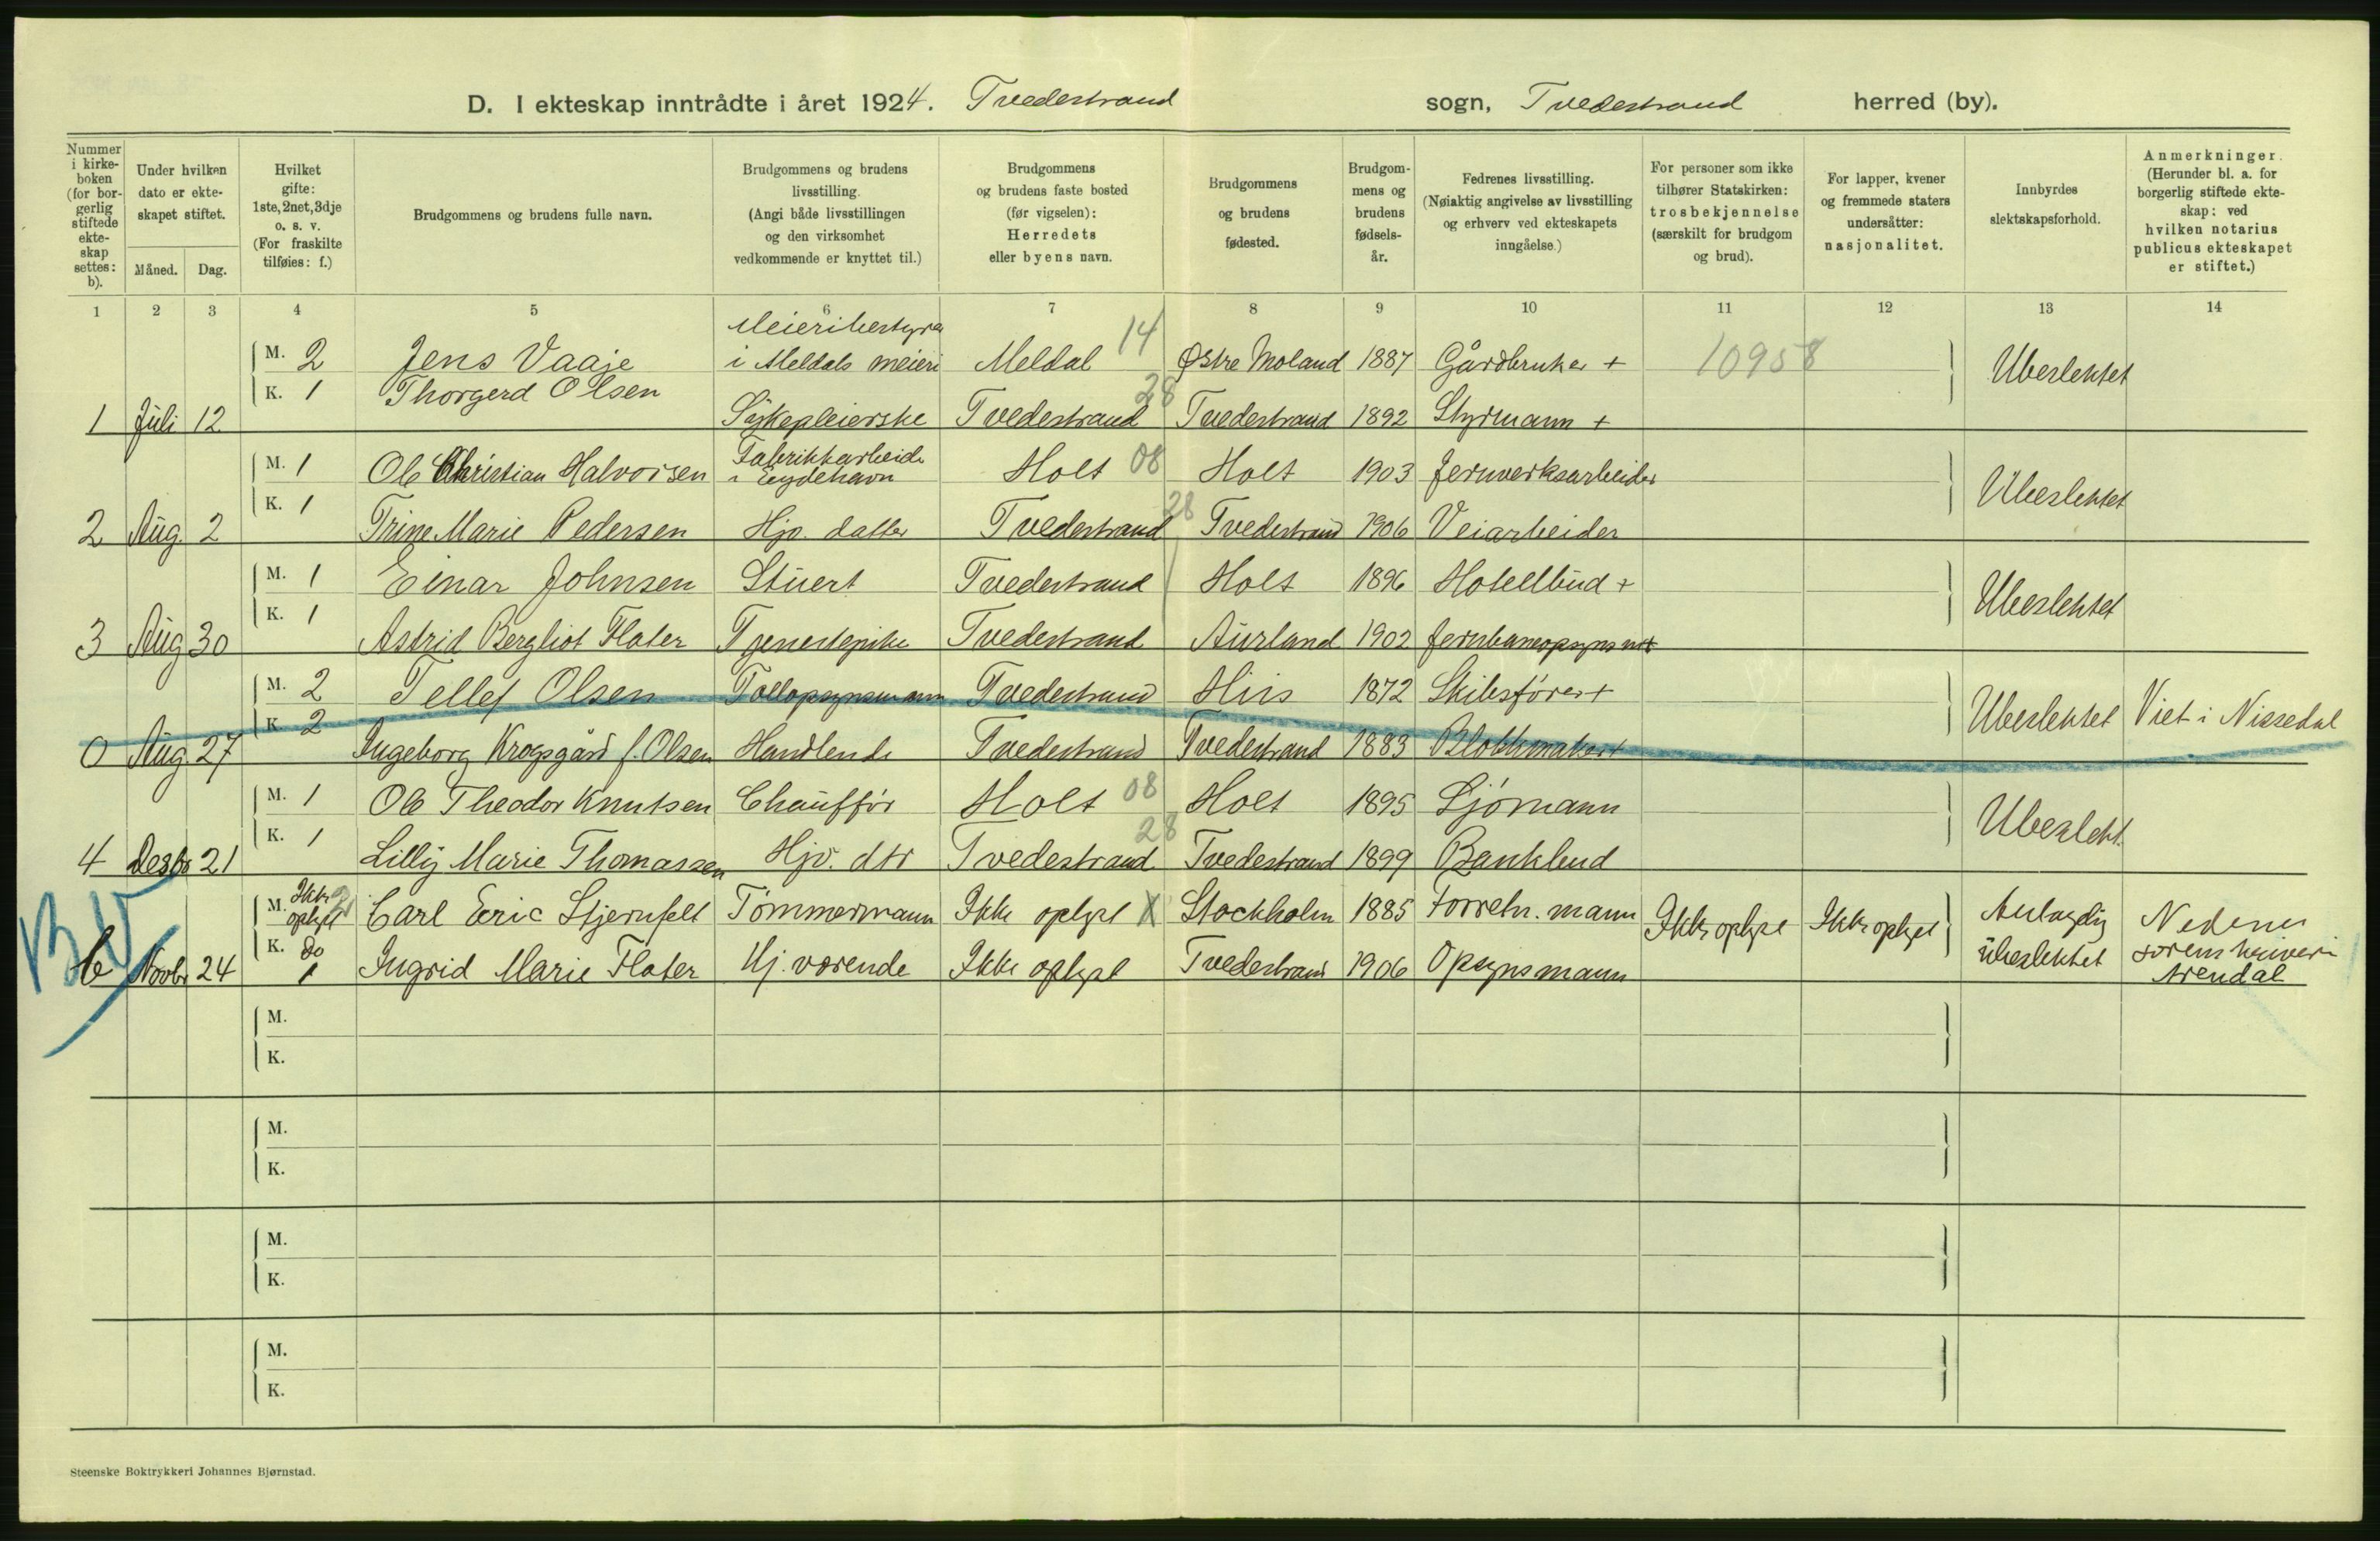 D. I ekteskap inntrådte i året 1924. Tvedestrand sogn, Tvedestrand herred (by).
Nummer i kirke- boken (for bor- gerlig stiftede ekte- skap settes: b).
Under hvilken dato er ekte- skapet stiftet.
Måned. Dag.
Hvilket gifte: 1ste, 2net, 3dje o. s. v. (For fraskilte tilføies: f.)
Brudgommens og brudens fulle navn.
Brudgommens og brudens livsstilling. (Angi både livsstillingen og den virksomhet vedkommende er knyttet til.)
Brudgommens og brudens faste bosted (før vigselen): Herredets eller byens navn.
Brudgommens og brudens fødested.
Brudgom- mens og brudens fødsels- år.
Fedrenes livsstilling. (Nøiaktig angivelse av livsstilling og erhverv ved ekteskapets inngåelse.)
For personer som ikke tilhører Statskirken: trosbekjennelse (særskilt for brudgom og brud).
For lapper, kvener og fremmede staters undersåtter: nasjonalitet.
Innbyrdes slektskapsforhold.
Anmerkninger. (Herunder bl. a. for borgerlig stiftede ekte- skap: ved hvilken notarius publicus ekteskapet er stiftet.)
1 2 3 4 5 6 7 8 9 10 11 12 13 14
M. 2 Jens Vaaje Meieribestyrer i Meldals meieri Meldal 14 Østre Moland 1887 Gårdbruker + 10958 Ubeslektet
1 Juli 12 K. 1 Thorgerd Olsen Sykepleierske Tvedestrand 28 Tvedestrand 1892 Styrmann +
M. 1 Ole Christian Halvorsen Fabrikkarbeide i Eydehavn Holt 08 Holt 1903 Jernverksarbeider Ubeslektet
2 Aug. 2 K. 1 Trine Marie Pedersen Hjv. datter Tvedestrand 28 Tvedestrand 1906 Veiarbeider
M. 1 Einar Johnsen Stuert Tvedestrand Holt 1896 Hotellbud + Ubeslektet
3 Aug 30 K. 1 Astrid Bergliot Flater Tjenestepike Tvedestrand Aurland 1902 Jernbaneopsynsm +
M. 2 Tellef Olsen Tollopsynsmann Tvedestrand Hiis 1872 Skibsfører + Ubeslektet Viet i Nissedal
0 Aug. 27 K. 2 Ingeborg Krogsgård f. Olsen Handlende Tvedestrand Tvedestrand 1883 Blokkmaker +
M. 1 Ole Theodor Knutsen Chauffør Holt 08 Holt 1895 Sjømann Ubeslekt.
4 Desbr 21 K. 1 Lilly Marie Thomassen Hjv. dtr Tvedestrand 28 Tvedestrand 1899 Bankbud
M. Ikke oplyst Carl Eric Stjernfelt Tømmermann Ikke oplyst X Stockholm 1885 Forretn. mann Ikke oplyst Ikke oplyst Antagelig ubeslektet Nedenes sorenskriveri Arendal
b Novbr 24 K. do 1 Ingrid Marie Flater Hj. værende Ikke oplyst Tvedestrand 1906 Opsynsmann
M.
K.
M.
K.
M.
K.
M.
K.
Steenske Boktrykkeri Johannes Bjørnstad.